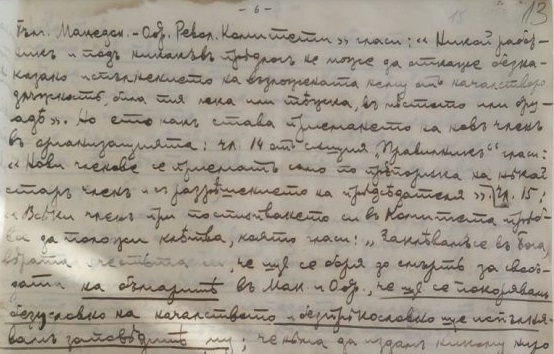 - 6 -
13
Бълг. Македон.-Одр. Револ. Комитети" гласи: "Никой работ-
никъ и подъ никакъвъ предлогъ не може да откаже безна-
казано испълнението на възложената нему отъ началството
длъжность, била тя лека или тѣжка, въ мѣстото или дру-
гадѣ". Но ето какъ става приемането на новъ членъ
въ организацията: чл. 14 отъ същия "Правилникъ" гласи:
"Нови членове се приематъ само по прѣпоръка на нѣкой
старъ членъ и съ разрѣшението на прѣдседателя". Чл. 15;
"Всѣки членъ при постѫпването си въ Комитета трѣб-
ва да положи клѣтва, която гласи: "Заклѣвамъ се въ Бога,
вѣрата честьта си, че ще се боря до смърть за своб-
одата на българитѣ въ Мак. и Одр., че ще се покорявамъ
безусловно на началството и безпрѣкословно ще испълня-
вамъ заповѣдитѣ му; че нѣма да издамъ никому